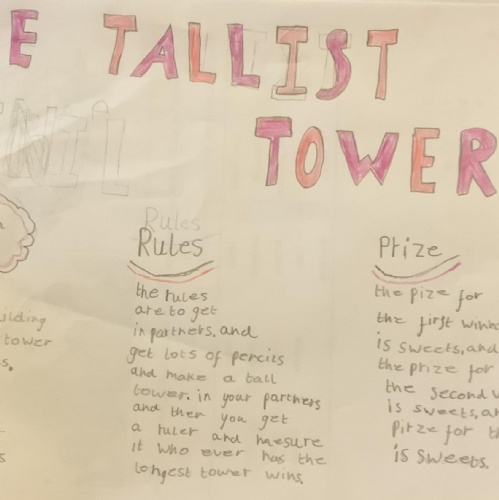 E TALLIST
TOWER
NIL
Rules
Rules
the rules
are to get
in partners, and
get lots of pencils
and make a tall
tower. in your partners
and then you get
a ruler and mesure
it who ever has the
longest tower wins
Prize
the pize for
the first winn
is sweets, and
the prize for
the second w
is sweets, an
pirze for th
is sweets.
uilding
tower
s.
s